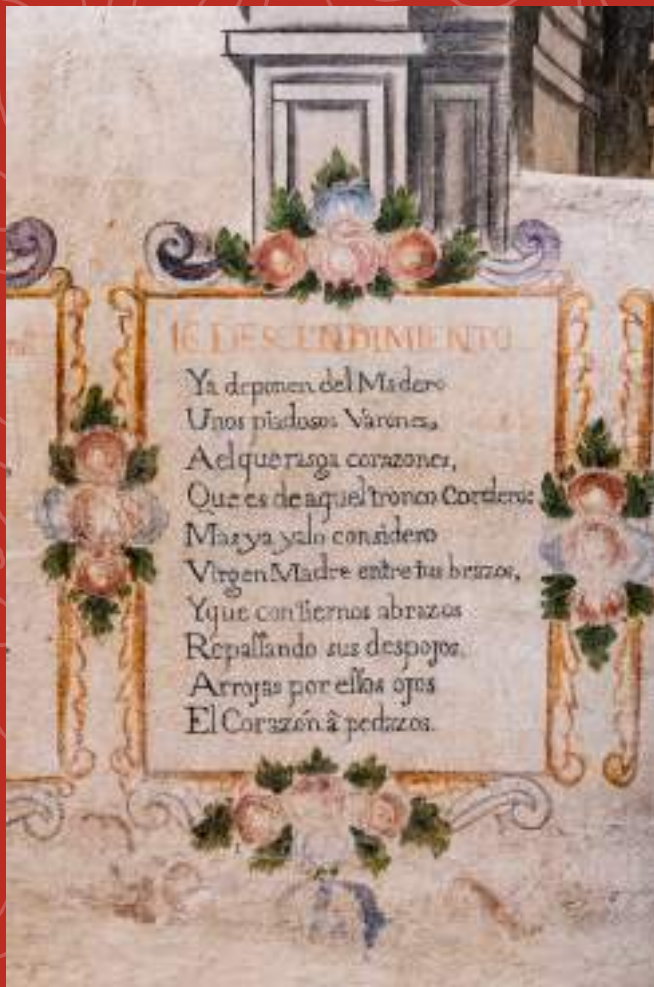 DESCENDIMIENTO
Ya deponen del Madero
Unos piadosos Varones,
Aelquerasga corazones,
Que es de aquel tronco Corderos
Mas ya yalo considero
Virgen Madre entre tus brazos,
Yque con tiernos abrazos
Repassando sus despojos,
Arrojas por ellos ojos
El Corazón â pedazos.